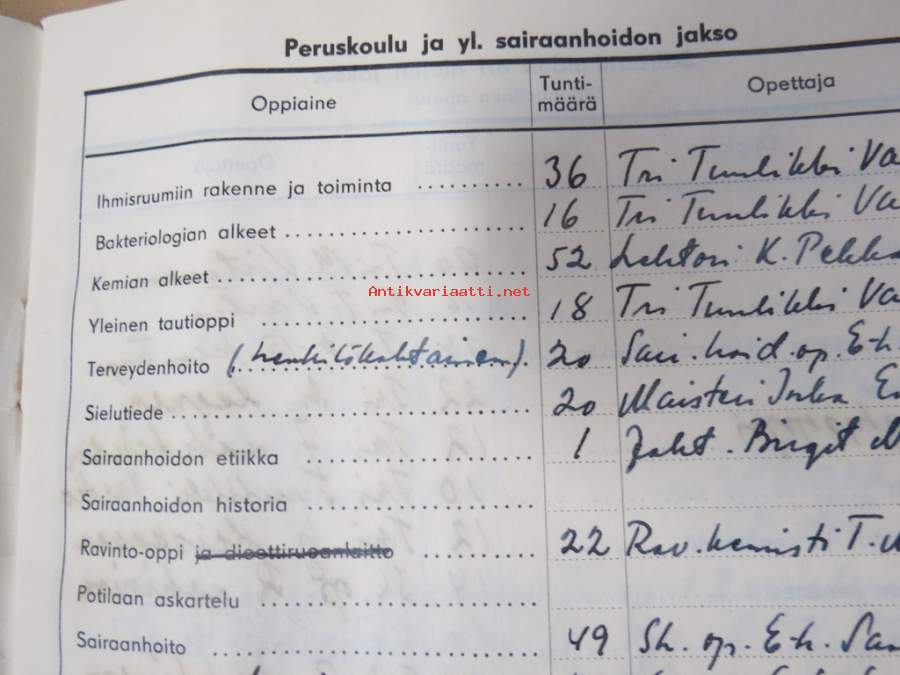 Peruskoulu ja yl. sairaanhoidon jakso
Oppiaine Tunti-määrä Opettaja
Ihmisruumiin rakenne ja toiminta .......... 36 Tri Tuulikki Va
Bakteriologian alkeet .......... 16 Tri Tuulikki Va
Kemian alkeet .......... 52 Lehtori K. Pekka
Antikvariaatti.net
Yleinen tautioppi .......... 18 Tri Tuulikki Va
Terveydenhoito (henkilökohtainen). 20 Sair.hoid.op. E-h.
Sielutiede .......... 20 Maisteri
Sairaanhoidon etiikka .......... 1 Joht. Birgit
Sairaanhoidon historia ..........
Ravinto-oppi ja dieettiruoanlaitto .......... 22 Rav.kemisti T.
Potilaan askartelu ..........
Sairaanhoito .......... 49 Sh. op. E-h. San